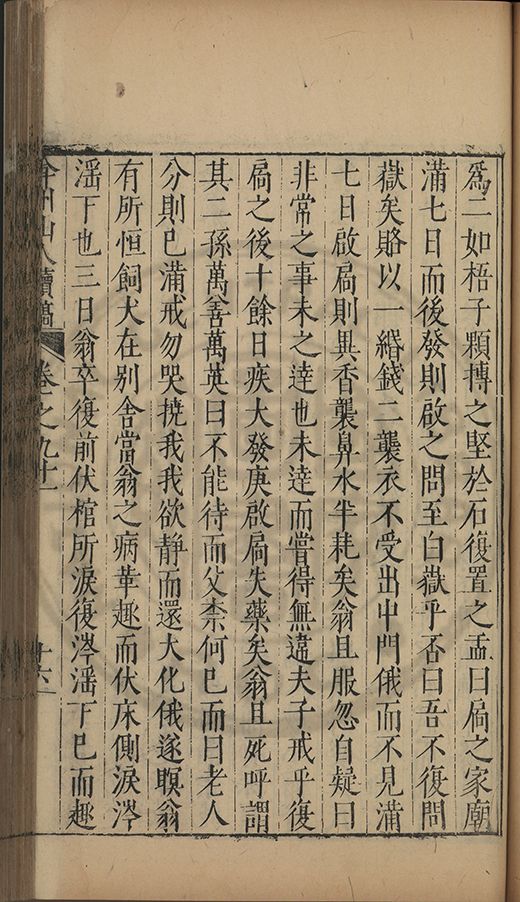 爲二如梧子顆摶之堅於石復置之盂曰扄之家廟
滿七日而後發則啟之問至白嶽乎否曰吾不復問
嶽矣賂以一緡錢二襲衣不受出中門俄而不見滿
七日啟扄則異香襲鼻水半耗矣翁且服忽自疑曰
非常之事未之逹也未逹而嘗得無違夫子戒乎復
扄之後十餘日疾大發庚啟扄失藥矣翁且死呼謂
其二孫萬善萬英曰不能待而父柰何已而曰老人
分則已滿戒勿哭撓我我欲靜而還大化俄遂瞑翁
有所恒飼犬在別舍當翁之病革趣而伏床側淚涔
滛下也三日翁卒復前伏棺所淚復涔滛下已而趣
弇州山人續稿 卷之九十一 十六